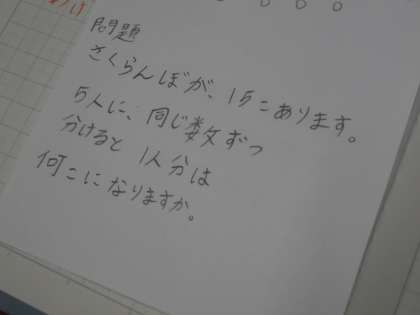 問題
さくらんぼが、15こあります。
5人に、同じ数ずつ
分けると 1人分は
何こになりますか。